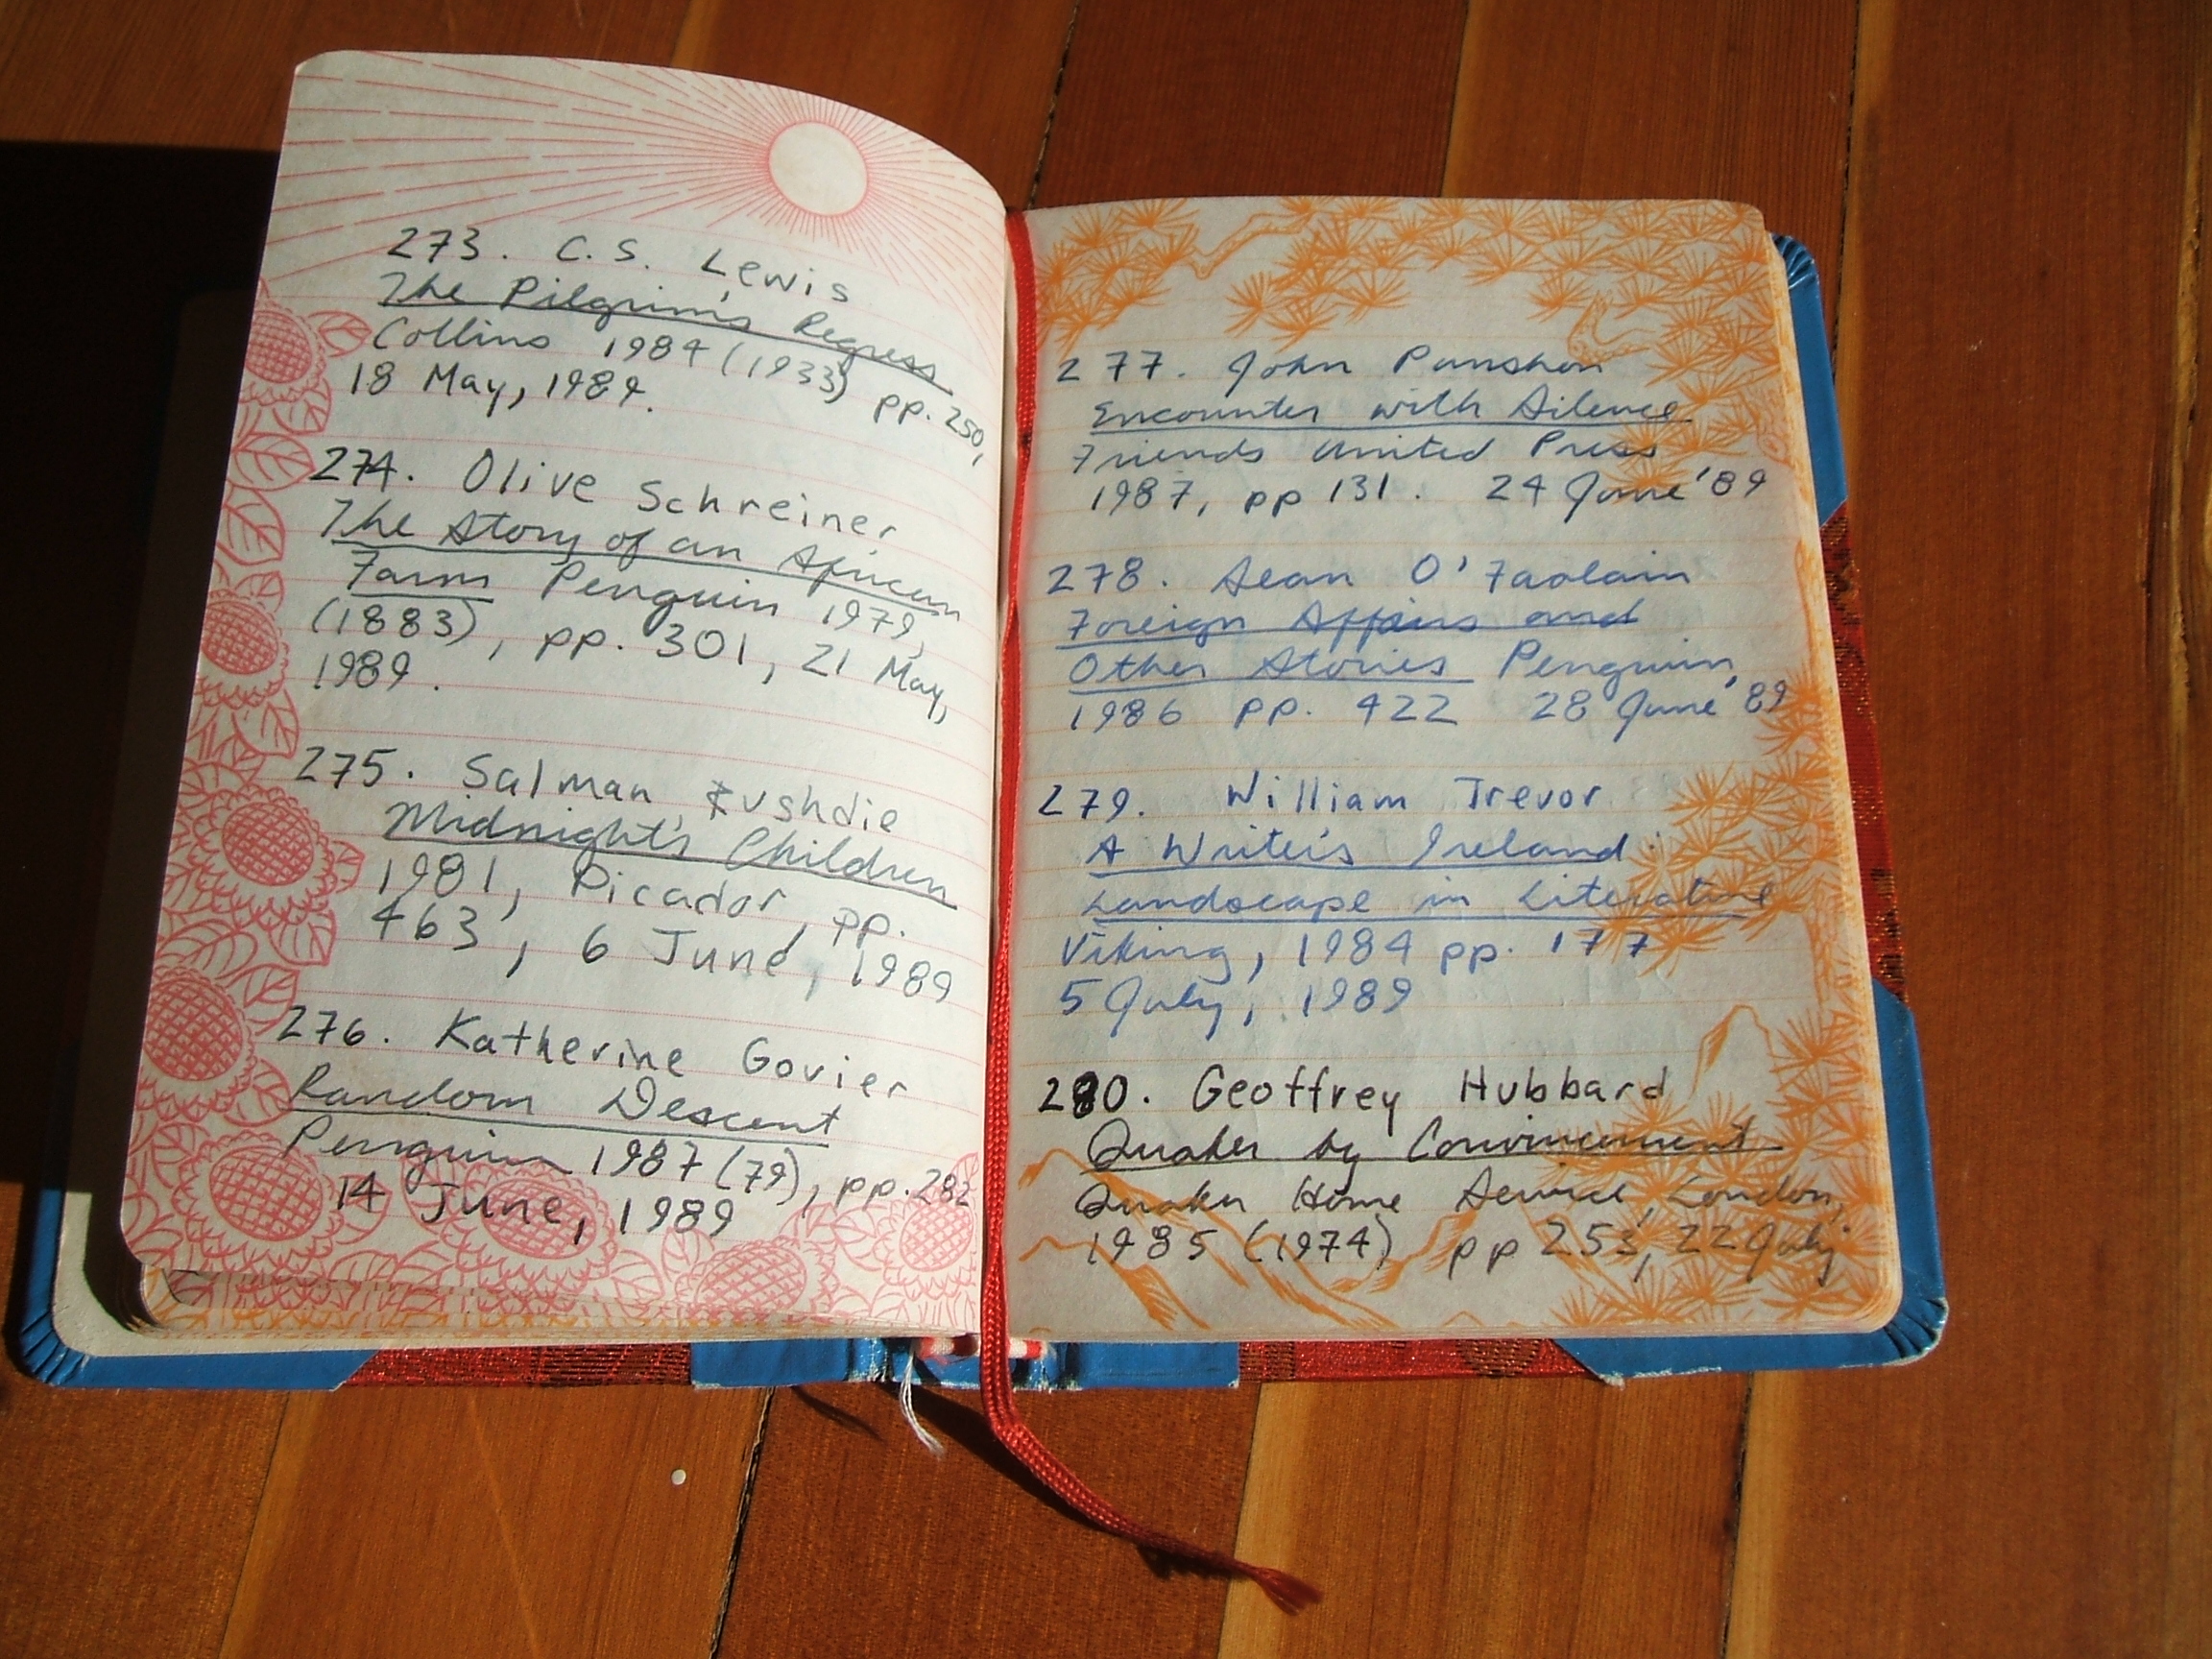 273. C.S. Lewis
The Pilgrim's Regress
Collins 1984 (1933) pp. 250,
18 May, 1989.
274. Olive Schreiner
The Story of an African
Farm Penguin 1979,
(1883), pp. 301, 21 May,
1989.
275. Salman Rushdie
Midnight's Children
1981, Picador, pp.
463, 6 June, 1989
276. Katherine Govier
Random Descent
Penguin 1987 (79), pp. 282
14 June, 1989
277. John Punshon
Encounter with Silence
Friends United Press
1987, pp 131. 24 June '89
278. Sean O'Faolain
Foreign Affairs and
Other Stories Penguin,
1986 pp. 422 28 June '89
279. William Trevor
A Writer's Ireland
Landscape in Literature
Viking, 1984 pp. 177
5 July, 1989
280. Geoffrey Hubbard
Quaker by Convincement
Quaker Home Service, London,
1985 (1974) pp 253, 22 July